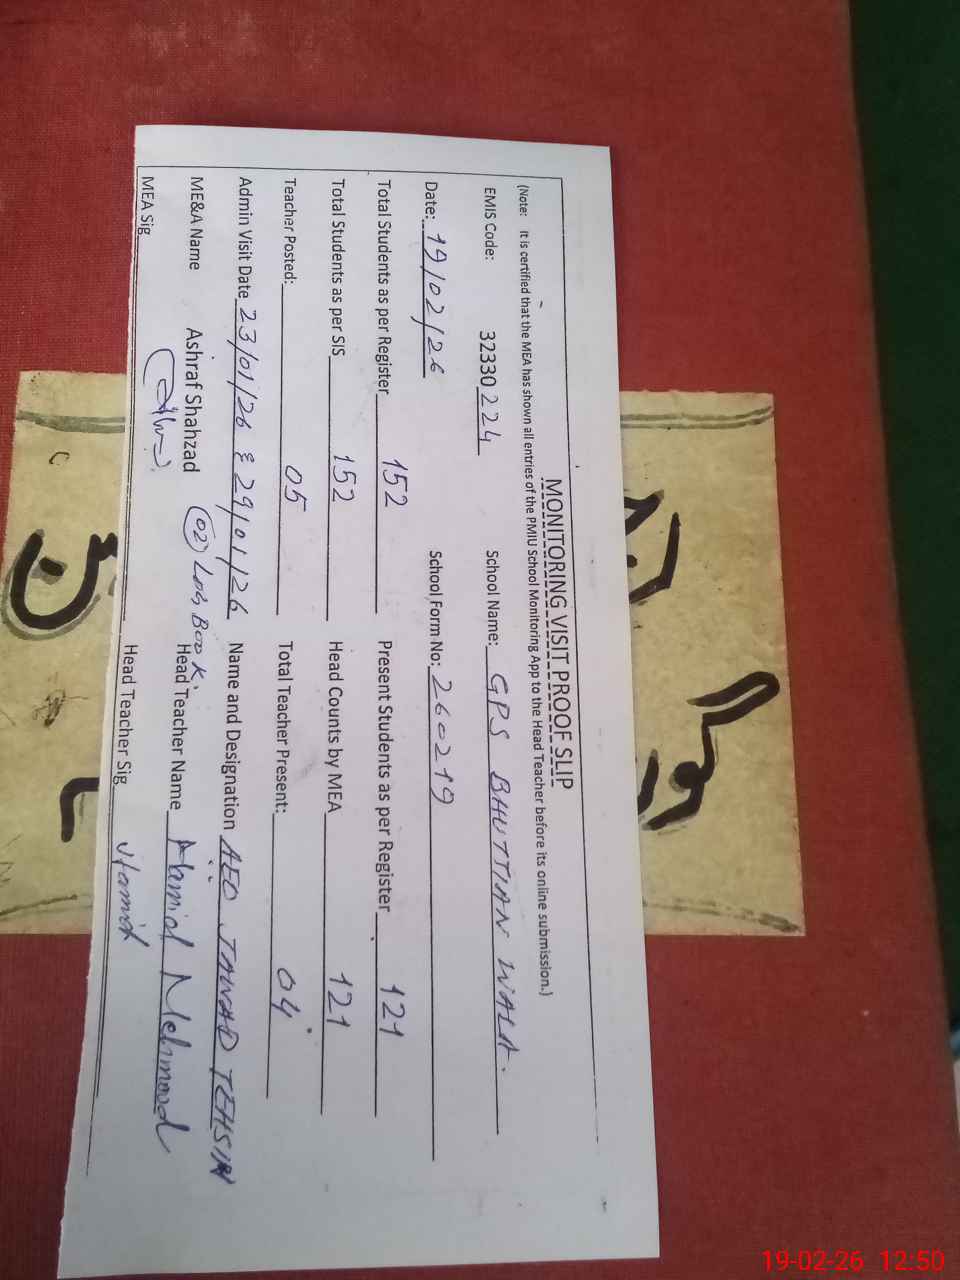 MONITORING VISIT PROOF SLIP
(Note: It is certified that the MEA has shown all entries of the PMIU School Monitoring App to the Head Teacher before its online submission.)
EMIS Code: 32330224 School Name: GPS BHUTTIAN WALA.
Date: 19/02/26 School Form No: 260219
Total Students as per Register 152 Present Students as per Register 121
Total Students as per SIS 152 Head Counts by MEA 121
Teacher Posted: 05 Total Teacher Present: 04
Admin Visit Date 23/01/26 & 29/01/26 Name and Designation AEO JAWAD TEHSIN
ME&A Name Ashraf Shahzad 02 Log Book. Head Teacher Name Hamid Mehmood
MEA Sig Head Teacher Sig Hamid
19-02-26 12:50